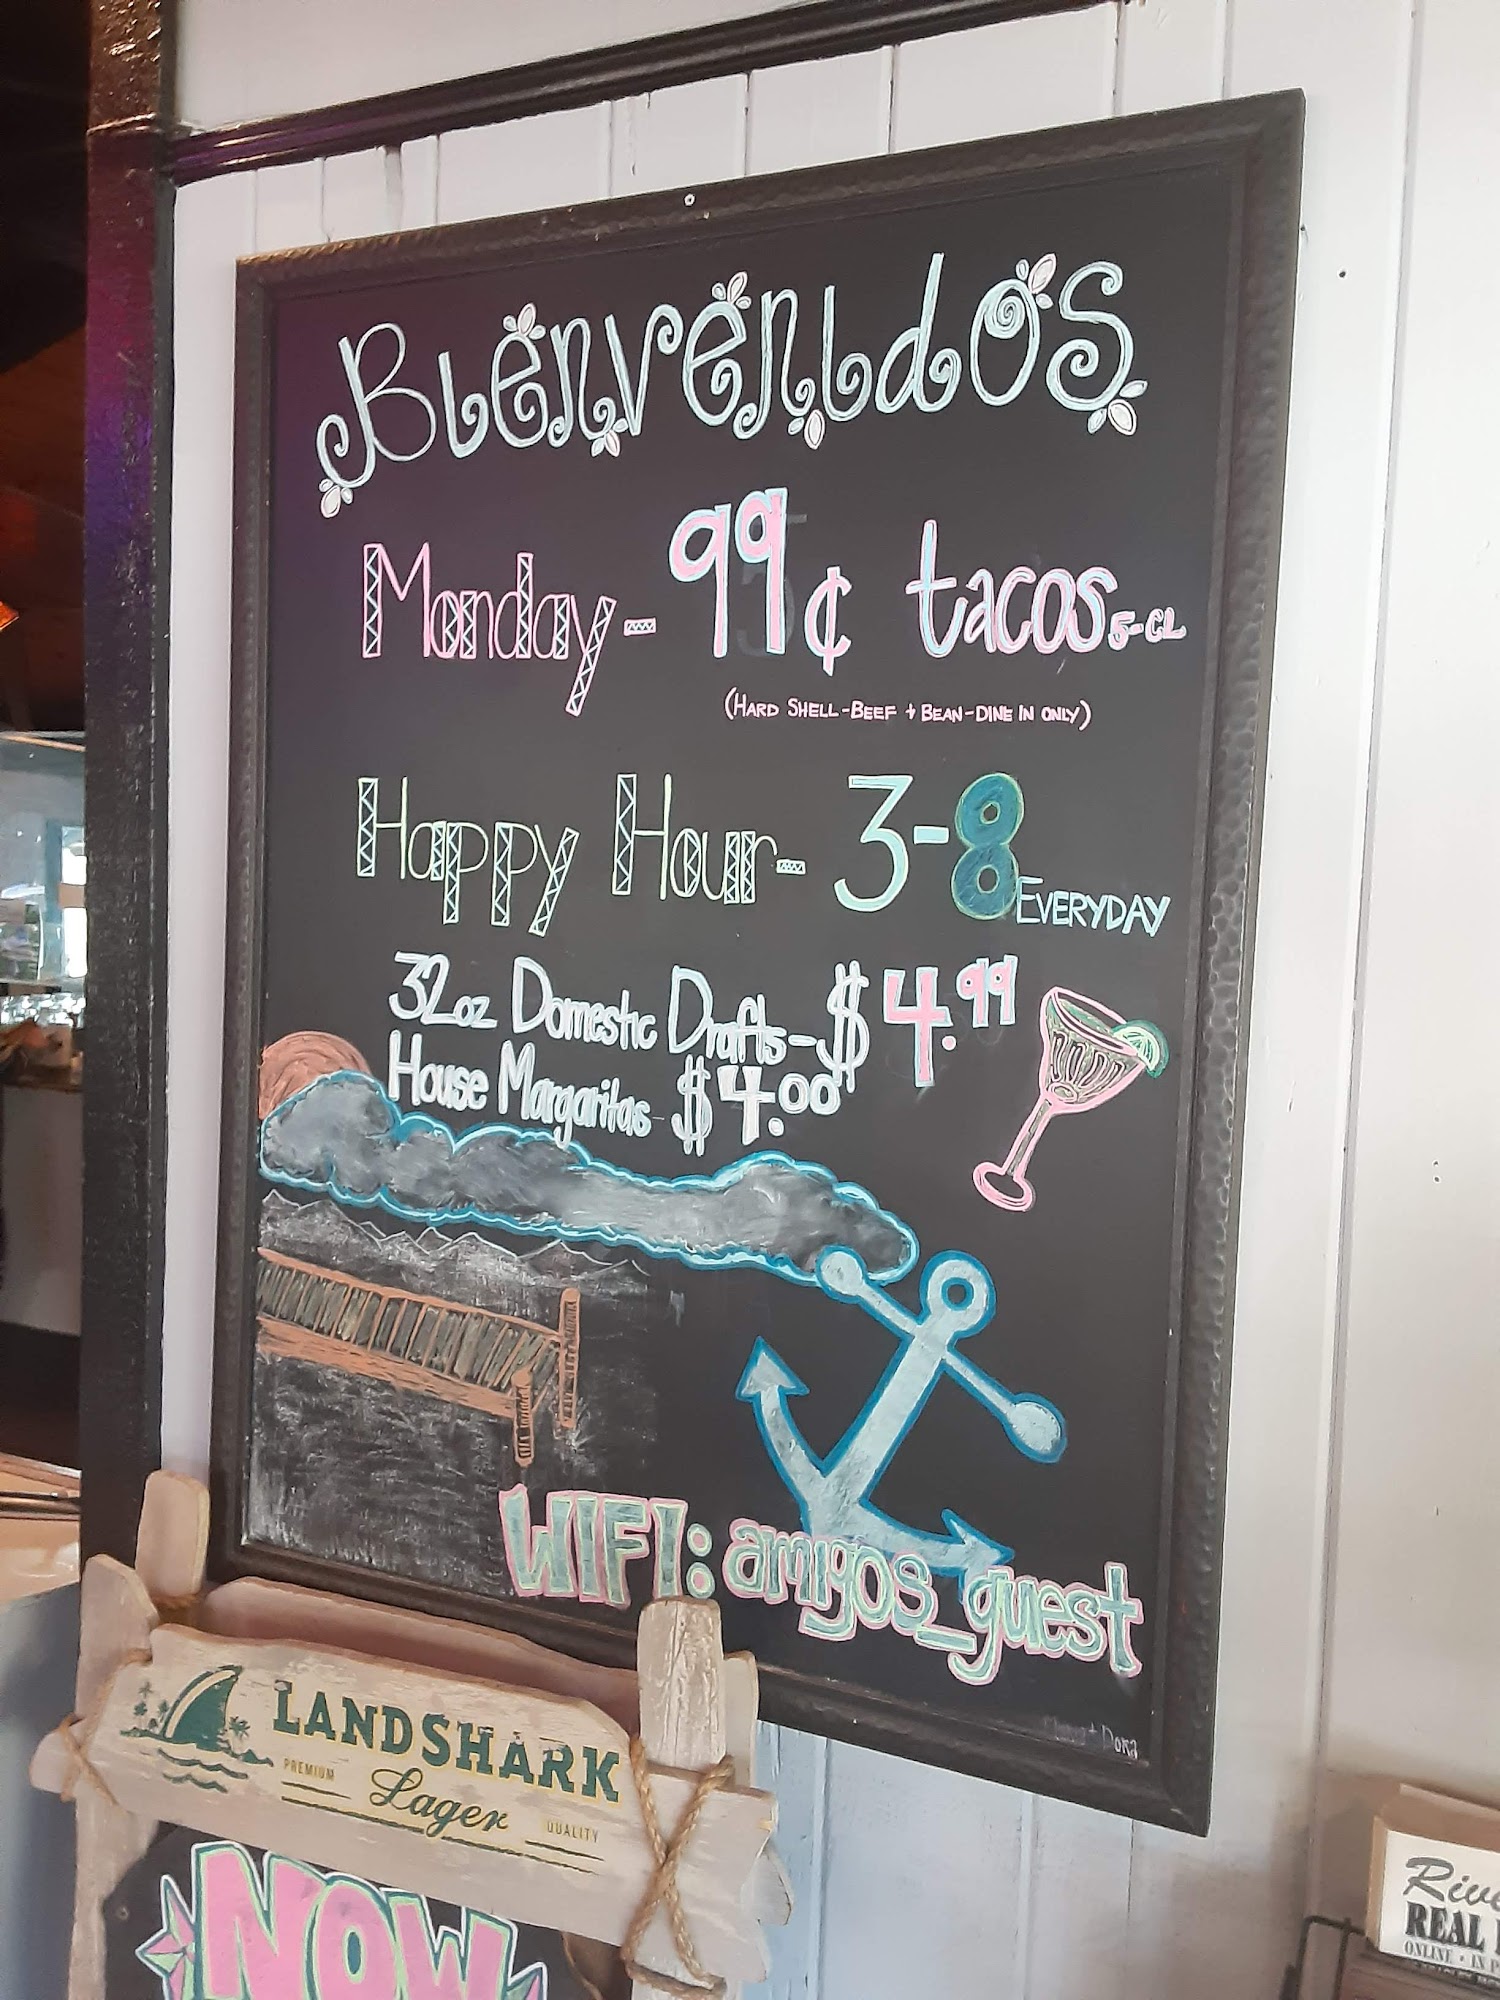 Bienvenidos
Monday - 99¢ tacos 5-CL
(HARD SHELL-BEEF + BEAN-DINE IN ONLY)
Happy Hour - 3-8 EVERYDAY
32oz Domestic Drafts - $4.99
House Margaritas - $4.00
WIFI: amigos_guest
Dora
LANDSHARK
PREMIUM Lager QUALITY
NOW
REAL
ONLINE